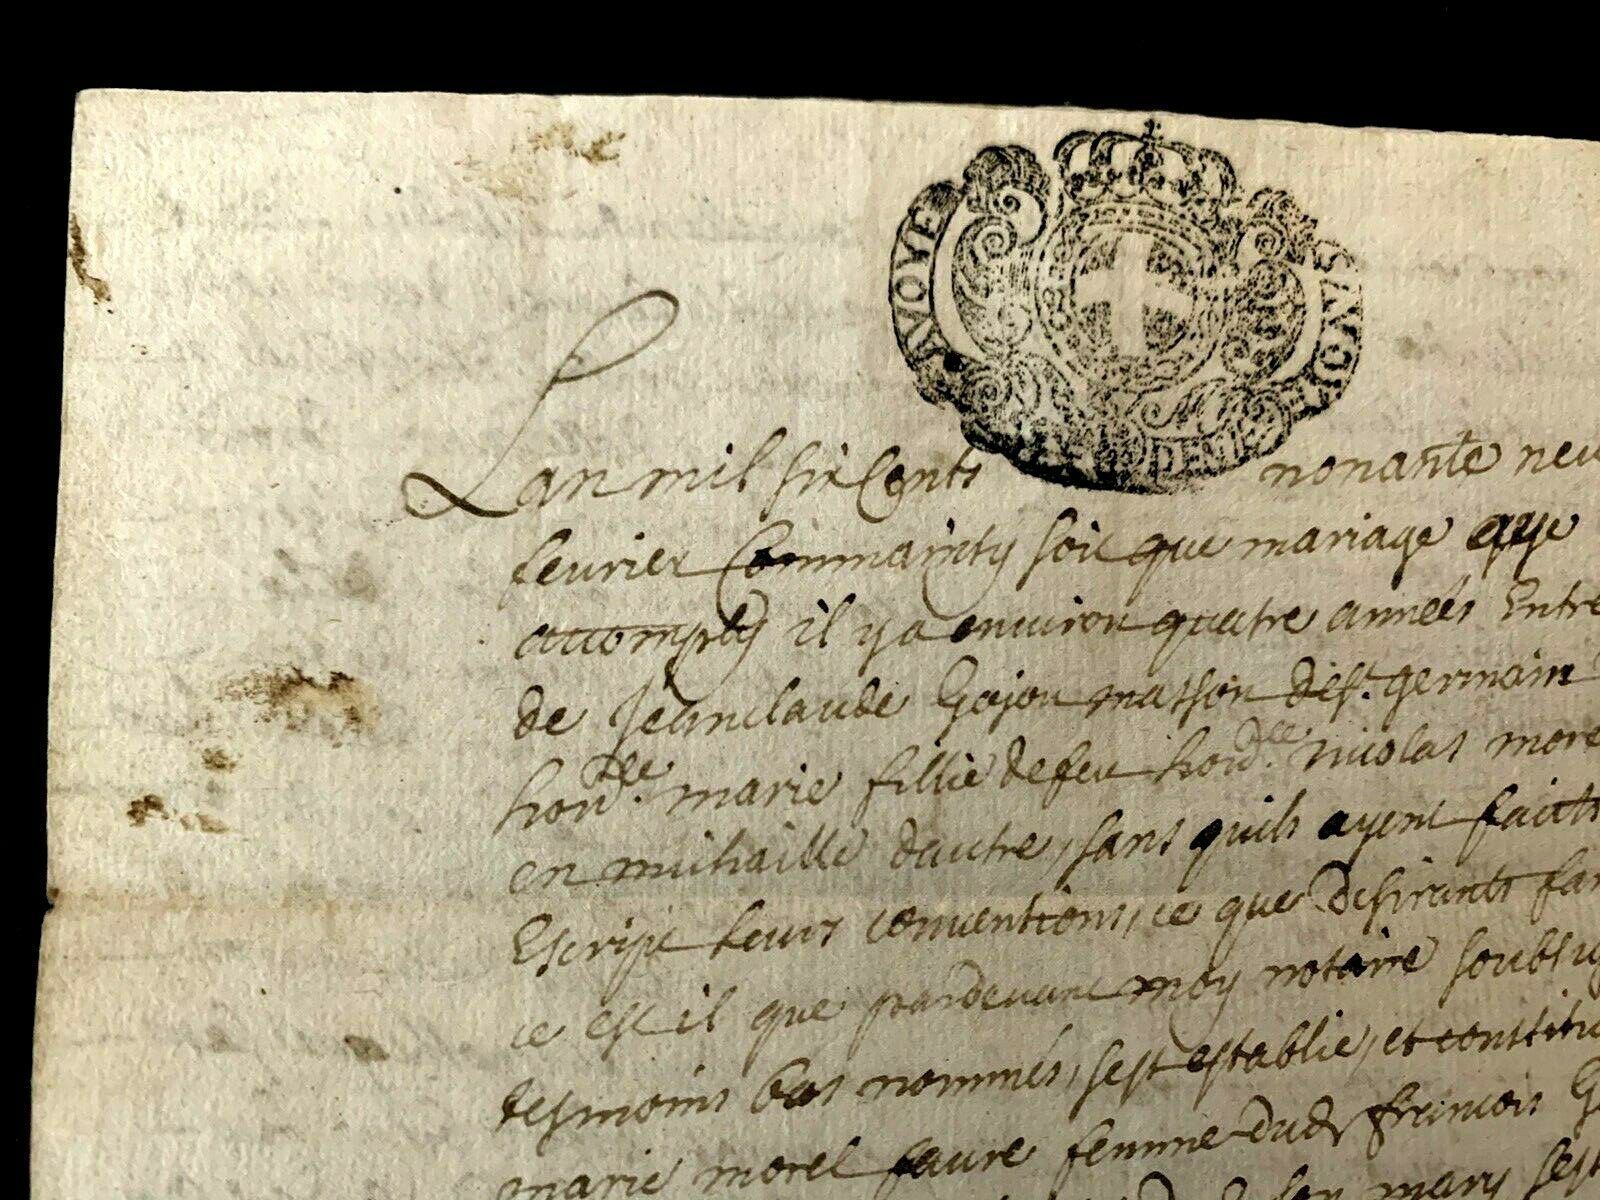 SAVOYE
DEVX
Lan mil six Cents nonante neu
fevrier Comme ainsy soit que mariage aye
accomply il y a environ quatre années Entre
de Jeanclaude Gojon masson dis.t germain
hon.lle marie fillie de feu hon.lle nicolas more
en michaille dautre, sans quils ayent faicts
Escript leurs conventions, ce que desirants fai
ce est il que pardevant moy notaire soubsig
tesmoins bas nommés, sest establie, et constitu
marie morel faure femme dud françois G
son mary sest